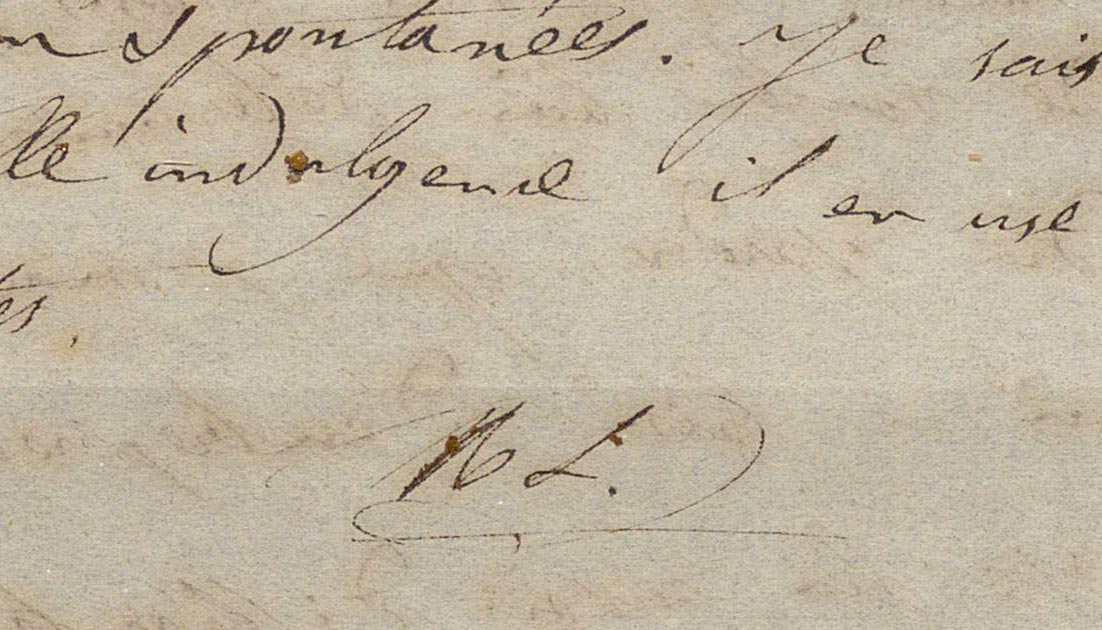 n spontanées. Je sais
lle indulgence il en use
tes.
N L.